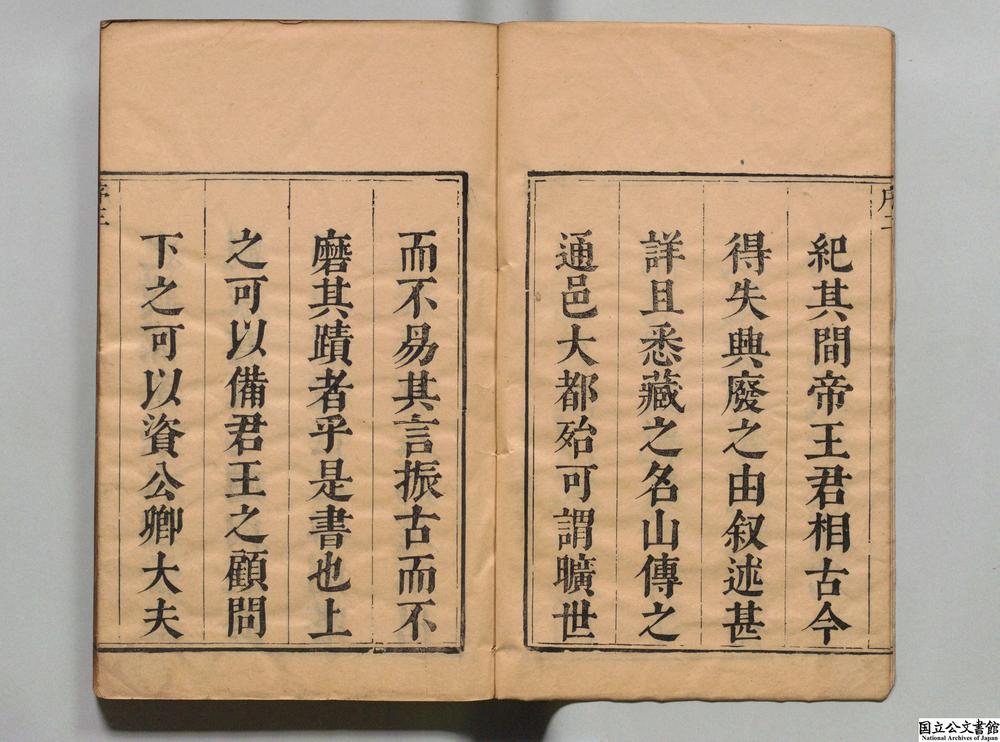 紀其間帝王君相古今
得失興廢之由叙述甚
詳且悉藏之名山傳之
通邑大都殆可謂曠世
而不易其言振古而不
磨其蹟者乎是書也上
之可以備君王之顧問
下之可以資公卿大夫
国立公文書館
National Archives of Japan